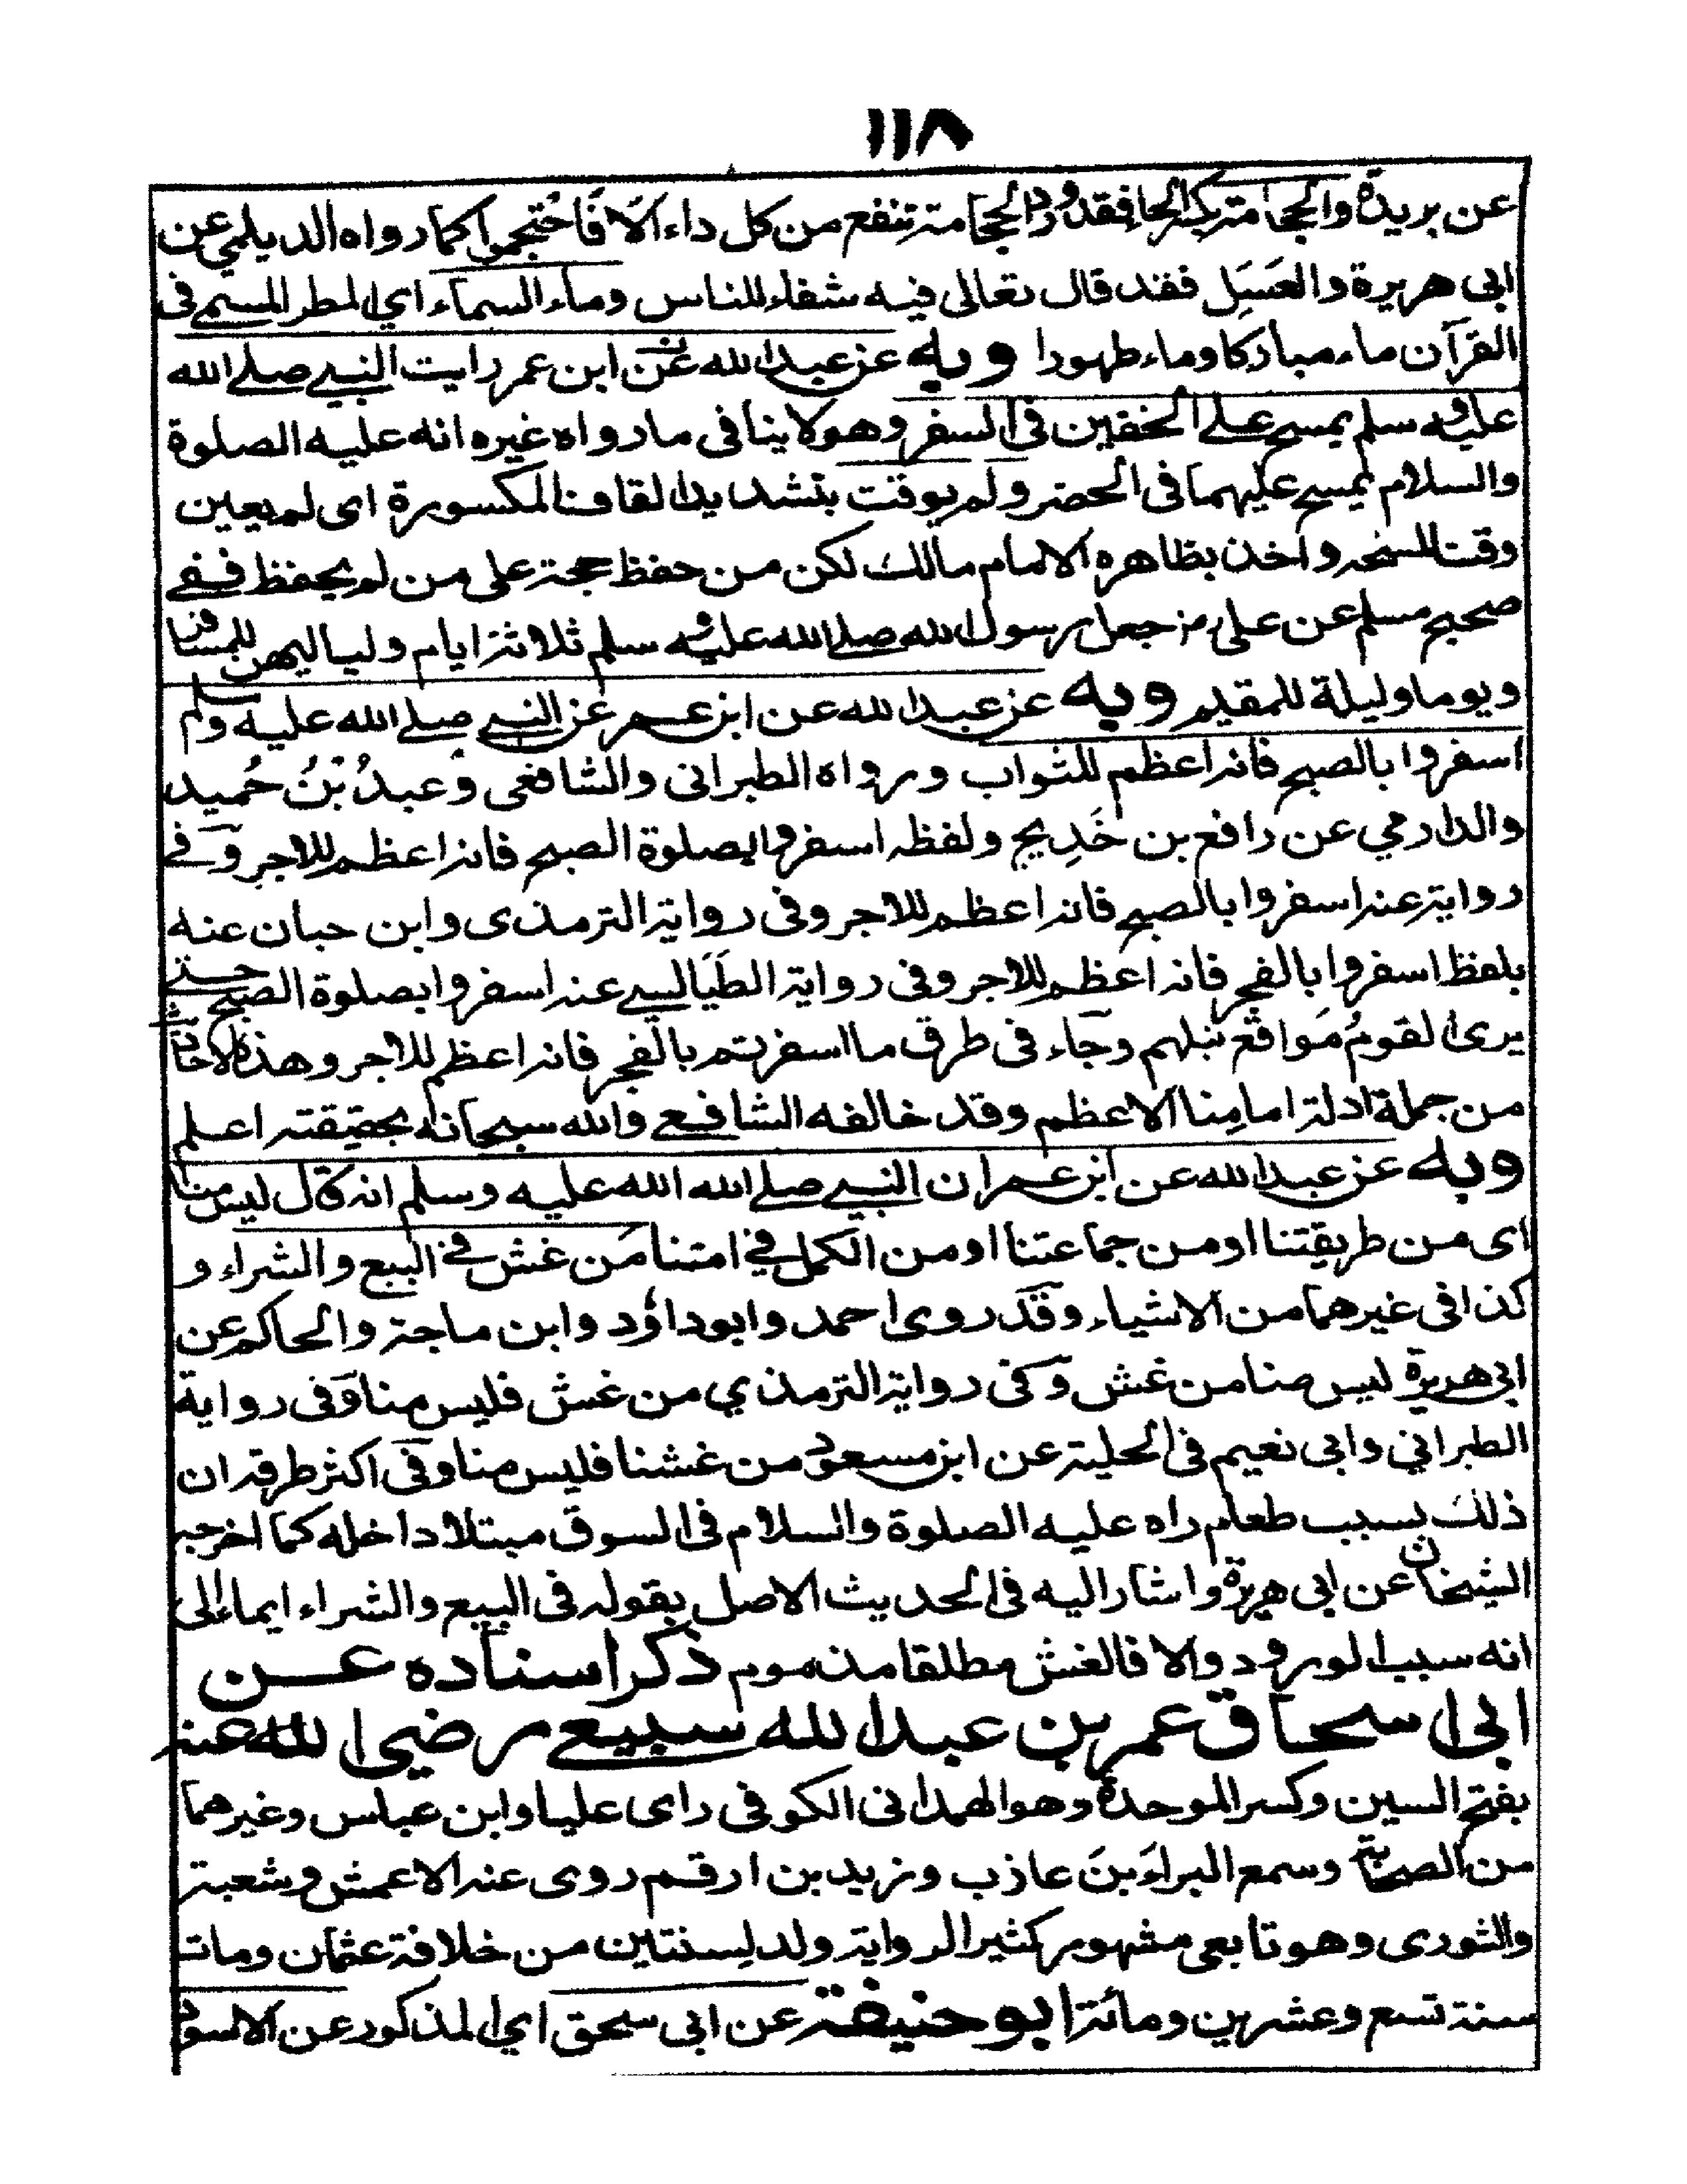 ١١٨
عن بريدة والحجامة بكسر الحاء فقد ورد الحجامة تنفع من كل داء الا فاحتجموا كما رواه الديلمي عن
ابى هريرة والعَسَل فقد قال تعالى فيه شفاء للناس وماء السماء اي المطر المسمى فى
القرآن ماء مباركا وماء طهورا وبه عن عبد الله عن ابن عمر رايت النبى صلى الله
عليه و سلم يمسح على الخفين فى السفر وهو لا ينافى ما رواه غيره انه عليه الصلوة
والسلام يمسح عليهما فى الحضر ولم يوقت بتشديد القاف المكسورة اى لم يعين
وقتا للمسح واخذ بظاهره الامام مالك لكن من حفظ حجة على من لم يحفظ ففى
صحيح مسلم عن على رض جعل رسول الله صلى الله عليه و سلم ثلاثة ايام ولياليهن للمسافر
ويوما وليلة للمقيم وبه عن عبد الله عن ابن عمر عن النبى صلى الله عليه وسلم
اسفروا بالصبح فانه اعظم للثواب ورواه الطبرانى والشافعى وعبدُ بْنُ حُميد
والدارمي عن رافع بن خَدِيج ولفظه اسفروا بصلوة الصبح فانه اعظم للاجر وفى
رواية عنه اسفروا بالصبح فانه اعظم للاجر وفى رواية الترمذى وابن حبان عنه
بلفظ اسفروا بالفجر فانه اعظم للاجر وفى رواية الطَيَالسى عنه اسفروا بصلوة الصبح حتى
يرى القومُ مَواقع نبلهم وجاء فى طرق ما اسفرتم بالفجر فانه اعظم للاجر وهذه الاحاديث
من جملة ادلة امامِنا الاعظم وقد خالفه الشافعى والله سبحانه بحقيقته اعلم
وبه عن عبد الله عن ابن عمر ان النبى صلى الله الله عليه وسلم انه قال ليس منا
اى من طريقتنا او من جماعتنا او من الكمل فى امتنا مَن غش فى البيع والشراء و
كذا فى غيرهما من الاشياء وقد روى احمد وابو داؤد وابن ماجة والحاكم عن
ابى هريرة ليس منا من غش وفى رواية الترمذي من غش فليس منا وفى رواية
الطبراني وابى نعيم فى الحلية عن ابن مسعود من غشنا فليس منا وفى اكثر طرقه ان
ذلك بسبب طعام راه عليه الصلوة والسلام فى السوق مبتلا داخله كما اخرجه
الشيخان عن ابى هريرة واشار اليه فى الحديث الاصل بقوله فى البيع والشراء ايماء الى
انه سبب الورود والا فالغش مطلقا مذموم ذكر اسناده عن
ابى اسحاق عمر بن عبد الله سبيعى رضي الله عنه
بفتح السين وكسر الموحدة وهو الهمدانى الكوفى راى عليا وابن عباس وغيرهما
من الصحابة وسمع البراءَ بنَ عاذب وزيد بن ارقم روى عنه الاعمش وشعبة
والثورى وهو تابعى مشهور كثير الرواية ولد لسنتين من خلافة عثمان ومات
سنة تسع وعشرين ومائة ابو حنيفة عن ابى سحق اي المذكور عن الاسود